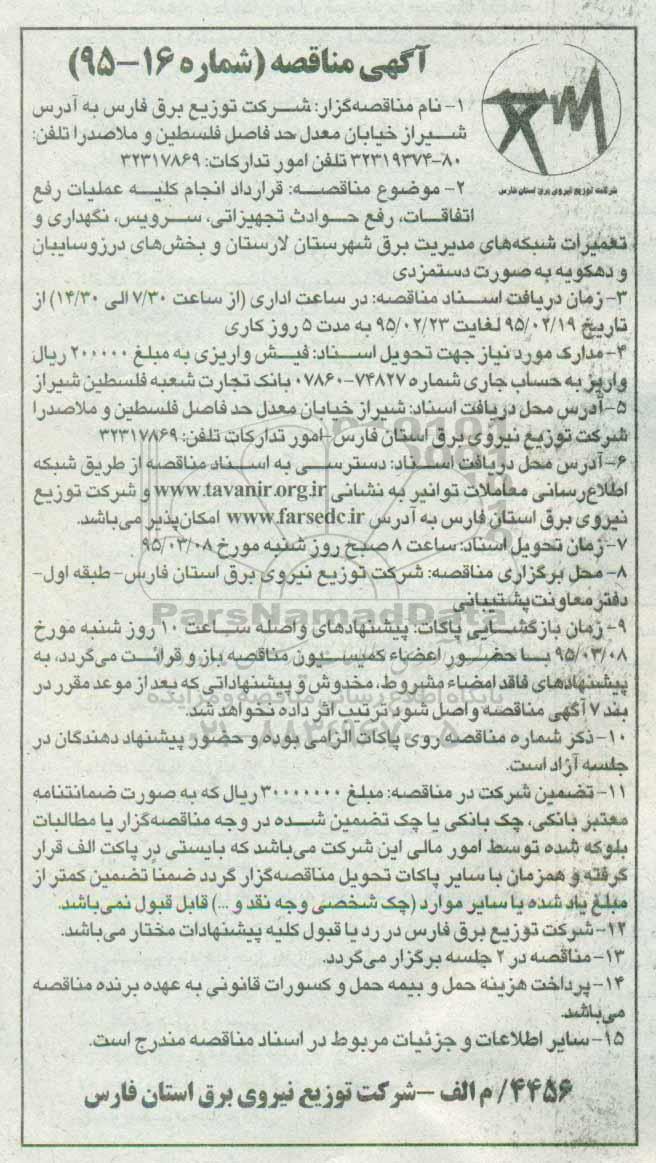 آگهی مناقصه (شماره ۱۶-۹۵)
شرکت توزیع نیروی برق استان فارس
۱- نام مناقصه‌گزار: شرکت توزیع برق فارس به آدرس
شیراز خیابان معدل حد فاصل فلسطین و ملاصدرا تلفن:
۸۰-۳۲۳۱۹۳۷۴ تلفن امور تدارکات: ۳۲۳۱۷۸۶۹
۲- موضوع مناقصه: قرارداد انجام کلیه عملیات رفع
اتفاقات، رفع حوادث تجهیزاتی، سرویس، نگهداری و
تعمیرات شبکه‌های مدیریت برق شهرستان لارستان و بخش‌های درزوسایبان
و دهکویه به صورت دستمزدی
۳- زمان دریافت اسناد مناقصه: در ساعت اداری (از ساعت ۷/۳۰ الی ۱۴/۳۰) از
تاریخ ۹۵/۰۲/۱۹ لغایت ۹۵/۰۲/۲۳ به مدت ۵ روز کاری
۴- مدارک مورد نیاز جهت تحویل اسناد: فیش واریزی به مبلغ ۲۰۰۰۰۰ ریال
واریز به حساب جاری شماره ۷۴۸۲۷-۰۷۸۶۰ بانک تجارت شعبه فلسطین شیراز
۵- آدرس محل دریافت اسناد: شیراز خیابان معدل حد فاصل فلسطین و ملاصدرا
شرکت توزیع نیروی برق استان فارس-امور تدارکات تلفن: ۳۲۳۱۷۸۶۹
۶- آدرس محل دریافت اسناد: دسترسی به اسناد مناقصه از طریق شبکه
اطلاع‌رسانی معاملات توانیر به نشانی www.tavanir.org.ir و شرکت توزیع
نیروی برق استان فارس به آدرس www.farsedc.ir امکان‌پذیر می‌باشد.
۷- زمان تحویل اسناد: ساعت ۸ صبح روز شنبه مورخ ۹۵/۰۳/۰۸
۸- محل برگزاری مناقصه: شرکت توزیع نیروی برق استان فارس- طبقه اول-
دفتر معاونت پشتیبانی
ParsNamadData
۹- زمان بازگشایی پاکات: پیشنهادهای واصله ساعت ۱۰ روز شنبه مورخ
۹۵/۰۳/۰۸ با حضور اعضاء کمیسیون مناقصه باز و قرائت می‌گردد، به
پیشنهادهای فاقد امضاء مشروط، مخدوش و پیشنهاداتی که بعد از موعد مقرر در
بند ۷ آگهی مناقصه واصل شود ترتیب اثر داده نخواهد شد.
۱۰- ذکر شماره مناقصه روی پاکات الزامی بوده و حضور پیشنهاد دهندگان در
جلسه آزاد است.
۱۱- تضمین شرکت در مناقصه: مبلغ ۳۰۰۰۰۰۰۰ ریال که به صورت ضمانتنامه
معتبر بانکی، چک بانکی یا چک تضمین شده در وجه مناقصه‌گزار یا مطالبات
بلوکه شده توسط امور مالی این شرکت می‌باشد که بایستی در پاکت الف قرار
گرفته و همزمان با سایر پاکات تحویل مناقصه‌گزار گردد ضمناً تضمین کمتر از
مبلغ یاد شده یا سایر موارد (چک شخصی وجه نقد و ...) قابل قبول نمی‌باشد.
۱۲- شرکت توزیع برق فارس در رد یا قبول کلیه پیشنهادات مختار می‌باشد.
۱۳- مناقصه در ۲ جلسه برگزار می‌گردد.
۱۴- پرداخت هزینه حمل و بیمه حمل و کسورات قانونی به عهده برنده مناقصه
می‌باشد.
۱۵- سایر اطلاعات و جزئیات مربوط در اسناد مناقصه مندرج است.
۴۴۵۶/ م الف -شرکت توزیع نیروی برق استان فارس